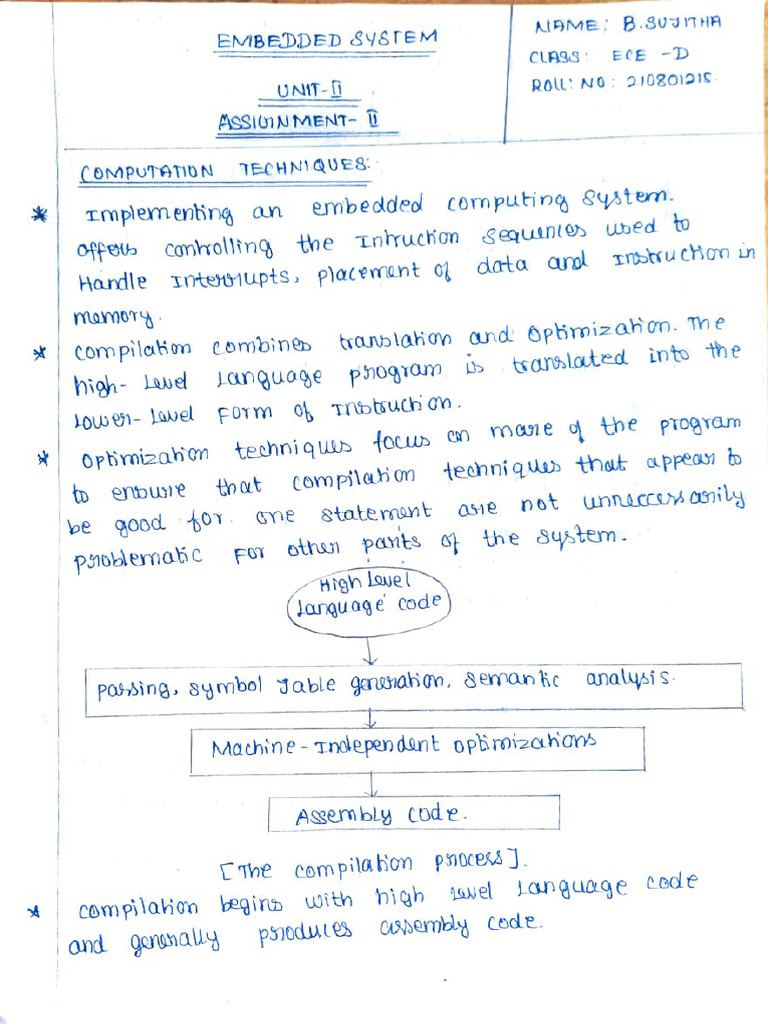 EMBEDDED SYSTEM
UNIT-II
ASSIGNMENT-II
NAME: B.SUJITHA
CLASS: ECE -D
ROLL: NO: 210801215.
COMPUTATION TECHNIQUES:
* Implementing an embedded computing system.
offers controlling the Intruction sequences used to
Handle Interrupts, placement of data and Instruction in
memory.
* compilation combines translation and optimization. The
high-Level Language program is translated into the
Lower-Level Form of Instruction.
* optimization techniques focus on more of the program
to ensure that compilation techniques that appear to
be good for one statement are not unneccessarily
problematic For other parts of the system.
High Level
Language code
Parsing, symbol Table generation, semantic analysis.
Machine-Independent optimizations
Assembly code.
[The compilation process].
* compilation begins with high Level Language code
and generally produces assembly code.